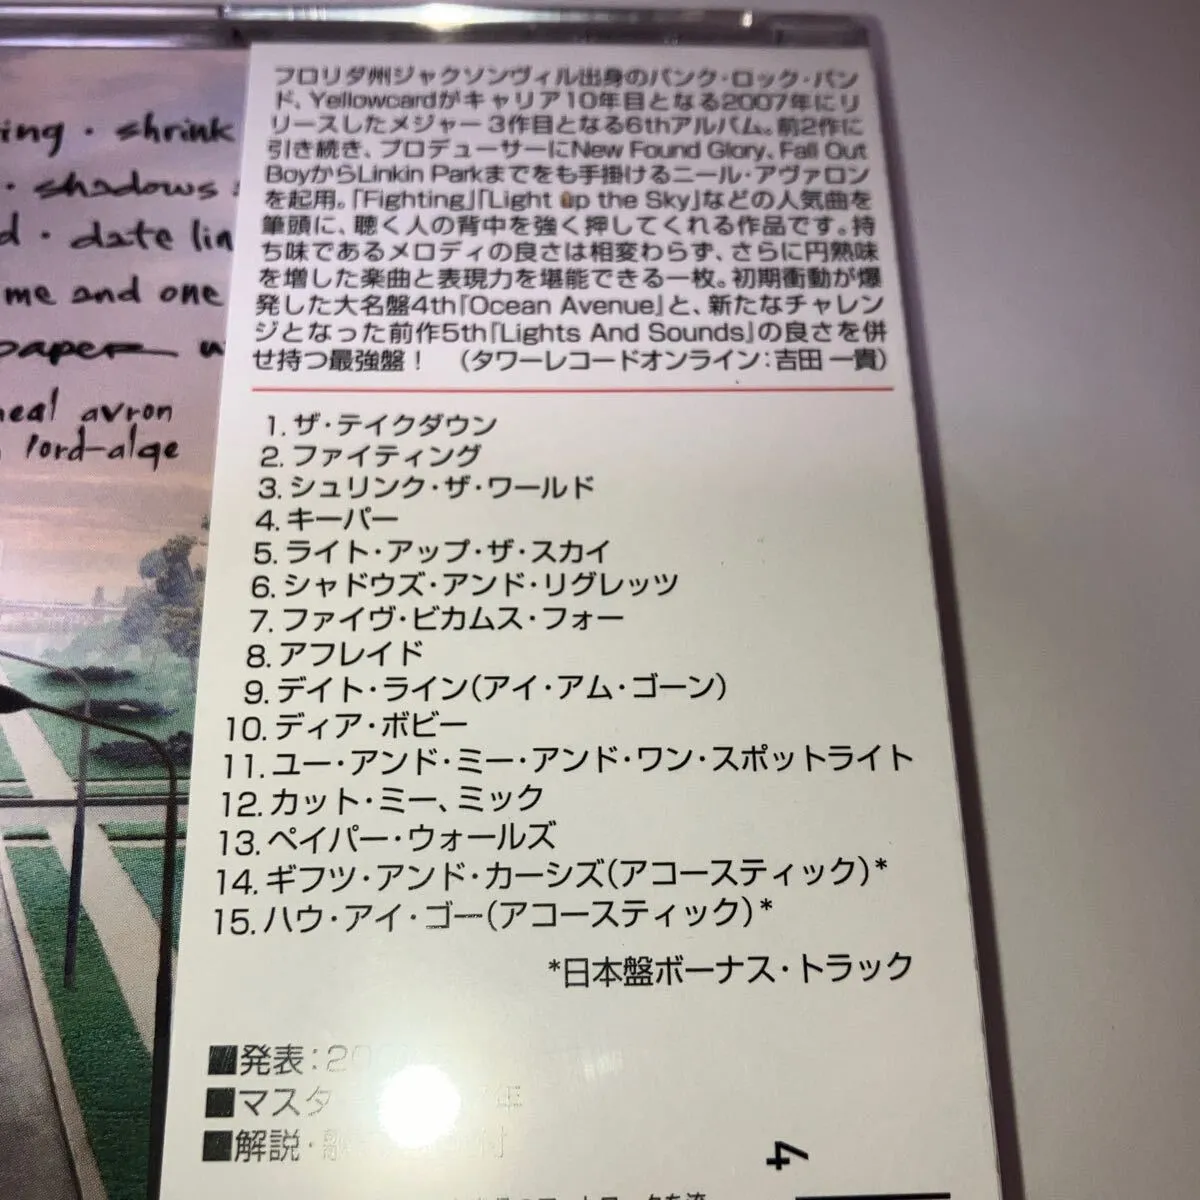 ing · shrink
· shadows
d · date lin
me and one
paper w
neal avron
lord-alge
フロリダ州ジャクソンヴィル出身のパンク・ロック・バン
ド、Yellowcardがキャリア10年目となる2007年にリ
リースしたメジャー3作目となる6thアルバム。前2作に
引き続き、プロデューサーにNew Found Glory、Fall Out
BoyからLinkin Parkまでをも手掛けるニール・アヴァロン
を起用。「Fighting」「Light up the Sky」などの人気曲を
筆頭に、聴く人の背中を強く押してくれる作品です。持
ち味であるメロディの良さは相変わらず、さらに円熟味
を増した楽曲と表現力を堪能できる一枚。初期衝動が爆
発した大名盤4th「Ocean Avenue」と、新たなチャレン
ジとなった前作5th「Lights And Sounds」の良さを併
せ持つ最強盤! (タワーレコードオンライン:吉田 一貴)
1. ザ・テイクダウン
2. ファイティング
3. シュリンク・ザ・ワールド
4. キーパー
5. ライト・アップ・ザ・スカイ
6. シャドウズ・アンド・リグレッツ
7. ファイヴ・ビカムス・フォー
8. アフレイド
9. デイト・ライン(アイ・アム・ゴーン)
10. ディア・ボビー
11. ユー・アンド・ミー・アンド・ワン・スポットライト
12. カット・ミー、ミック
13. ペイパー・ウォールズ
14. ギフツ・アンド・カーシズ(アコースティック)*
15. ハウ・アイ・ゴー(アコースティック)*
*日本盤ボーナス・トラック
■発表:20
■マスタ 年
■解説・ 付
4